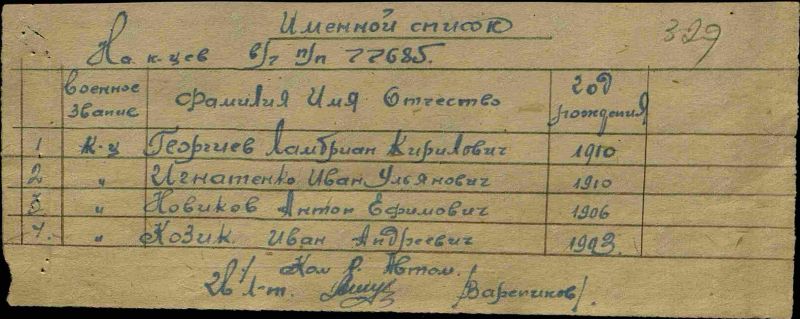 Именной список
329
На к-цев в/ч п/п 77685.
военное звание Фамилия Имя Отчество год рождения
1 к-ц Георгиев Ламбриан Кирилович 1910
2 " Игнатенко Иван Ульянович 1910
3 " Новиков Антон Ефимович 1906
4. " Козик Иван Андреевич 1923.
Ком. р. Автом.
Л-т. /Варепиков/.